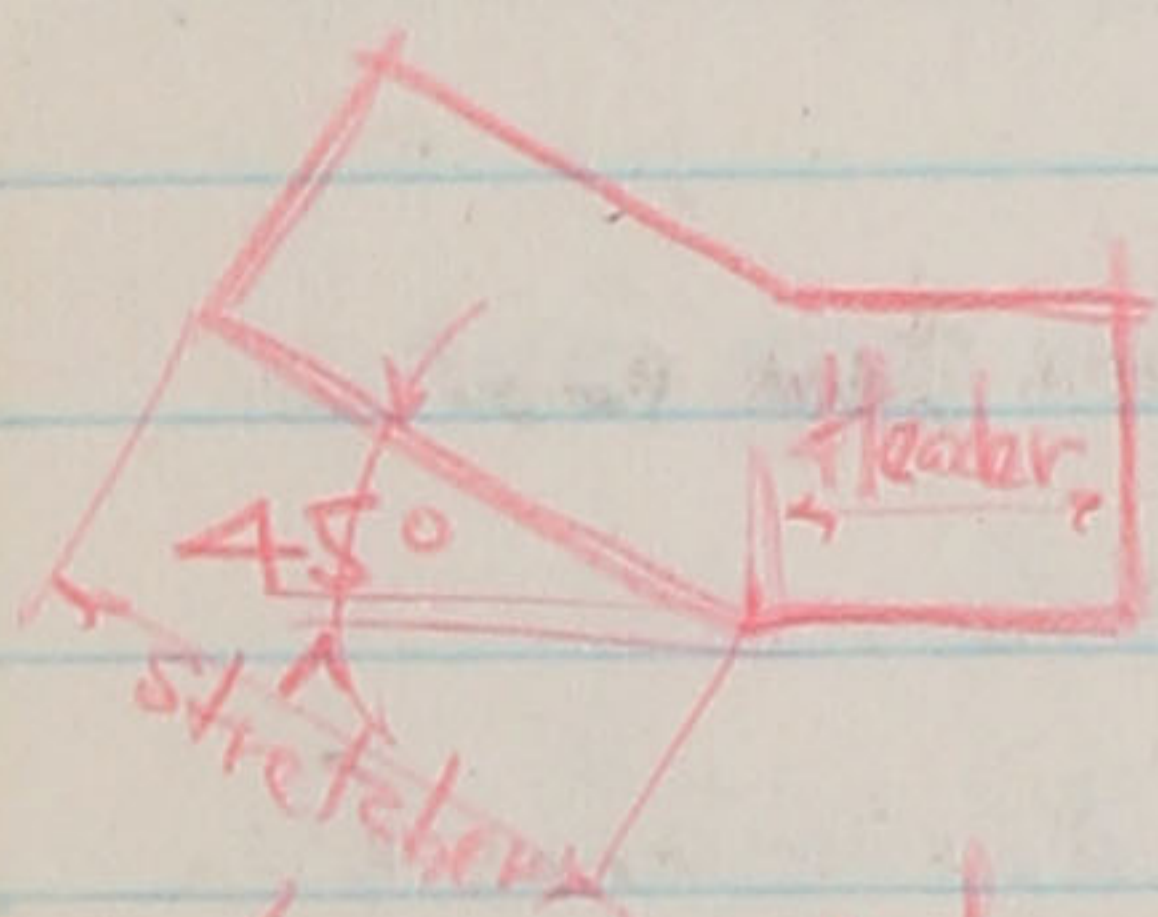 Header
45°
Stretcher